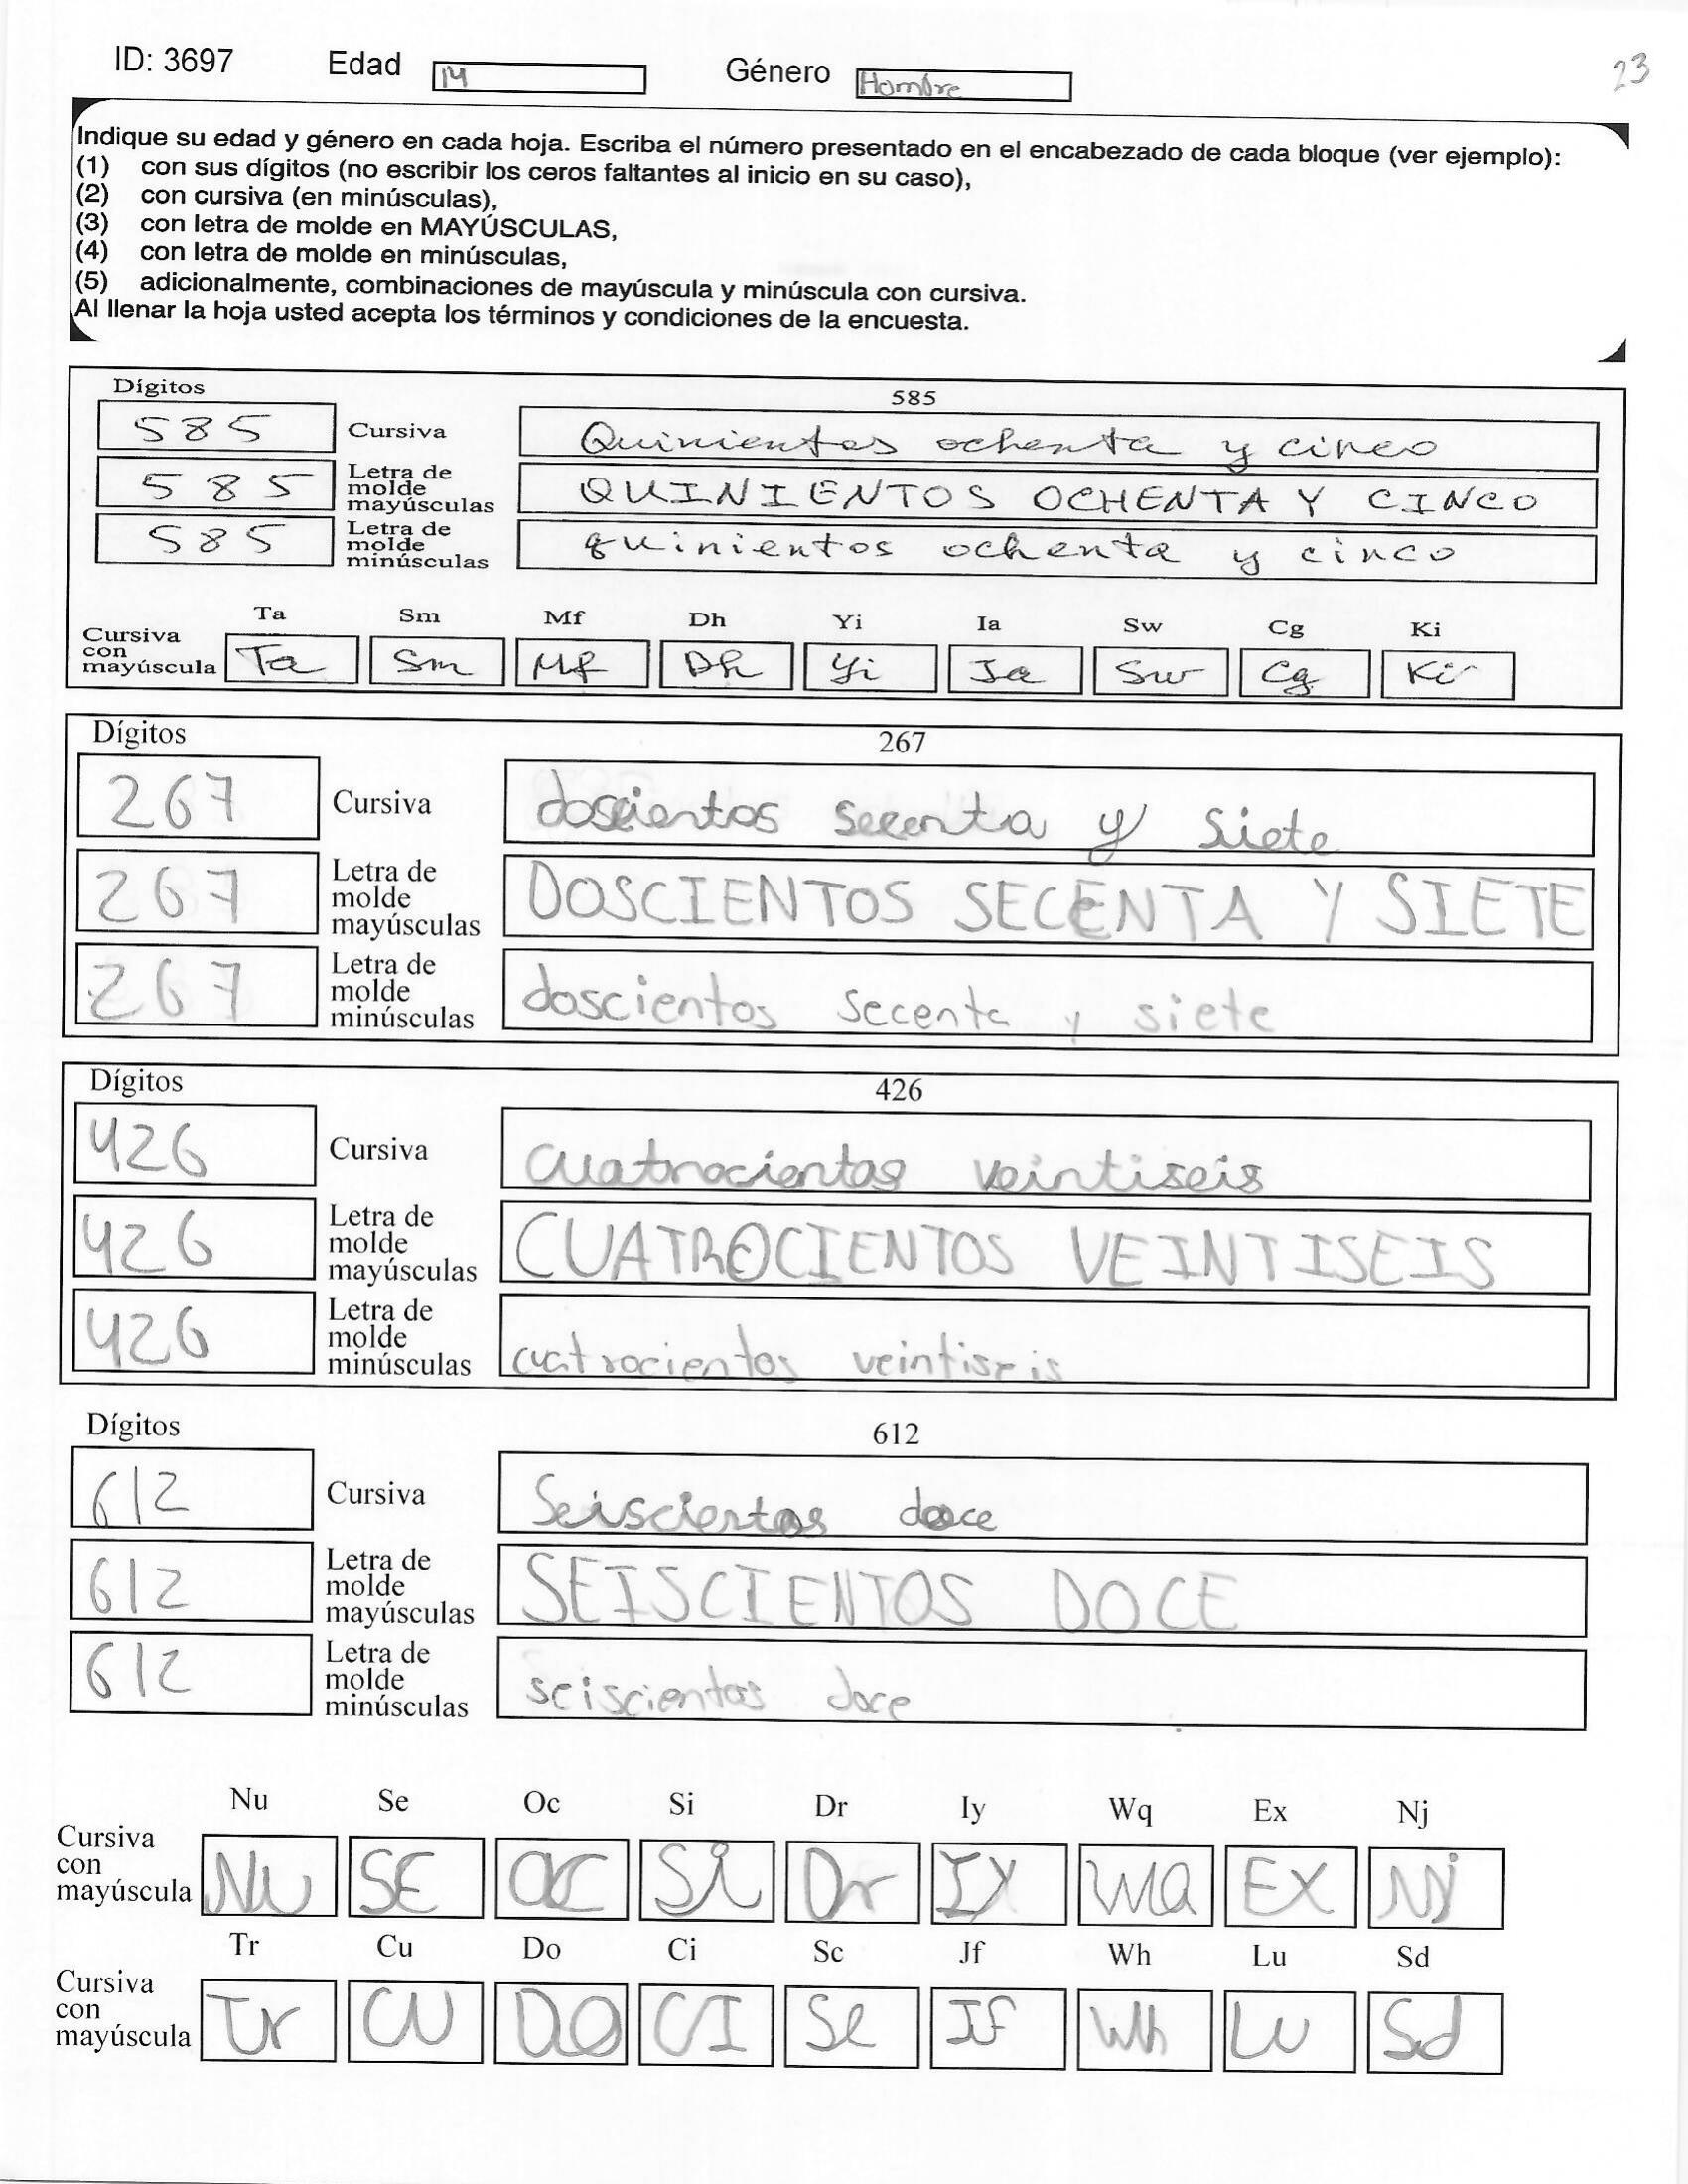 ID: 3697 Edad 14 Género Hombre 23
Indique su edad y género en cada hoja. Escriba el número presentado en el encabezado de cada bloque (ver ejemplo):
(1) con sus dígitos (no escribir los ceros faltantes al inicio en su caso),
(2) con cursiva (en minúsculas),
(3) con letra de molde en MAYÚSCULAS,
(4) con letra de molde en minúsculas,
(5) adicionalmente, combinaciones de mayúscula y minúscula con cursiva.
Al llenar la hoja usted acepta los términos y condiciones de la encuesta.
Dígitos 585
585 Cursiva Quinientos ochenta y cinco
585 Letra de molde mayúsculas QUINIENTOS OCHENTA Y CINCO
585 Letra de molde minúsculas quinientos ochenta y cinco
Ta Sm Mf Dh Yi Ia Sw Cg Ki
Cursiva con mayúscula Ta Sm Mf Dh Yi Ia Sw Cg Ki
Dígitos 267
267 Cursiva doscientos secenta y siete
267 Letra de molde mayúsculas DOSCIENTOS SECENTA Y SIETE
267 Letra de molde minúsculas doscientos secenta y siete
Dígitos 426
426 Cursiva cuatrocientos veintiseis
426 Letra de molde mayúsculas CUATROCIENTOS VEINTISEIS
426 Letra de molde minúsculas cuatrocientos veintiseis
Dígitos 612
612 Cursiva Seiscientos doce
612 Letra de molde mayúsculas SEISCIENTOS DOCE
612 Letra de molde minúsculas seiscientos doce
Nu Se Oc Si Dr Iy Wq Ex Nj
Cursiva con mayúscula Nu SE OC Si Dr IY Wq EX Nj
Tr Cu Do Ci Sc Jf Wh Lu Sd
Cursiva con mayúscula Tr CU DO CI Sc Jf Wh Lu Sd